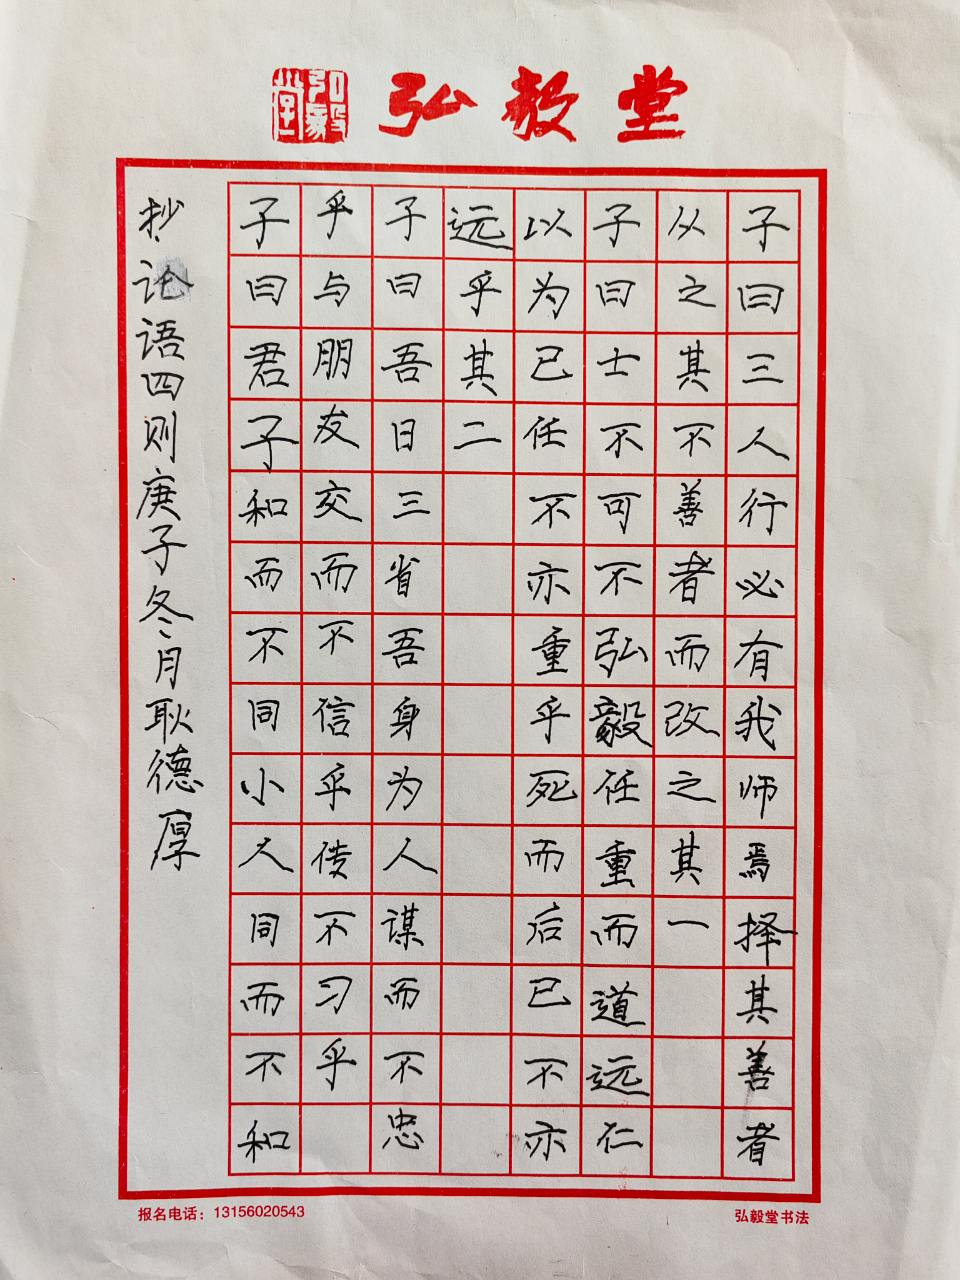 弘毅堂
弘毅堂
子曰三人行必有我师焉择其善者
从之其不善者而改之其一
子曰士不可不弘毅任重而道远仁
以为已任不亦重乎死而后已不亦
远乎其二
子曰吾日三省吾身为人谋而不忠
乎与朋友交而不信乎传不习乎
子曰君子和而不同小人同而不和
抄论语四则庚子冬月耿德厚
报名电话：13156020543
弘毅堂书法